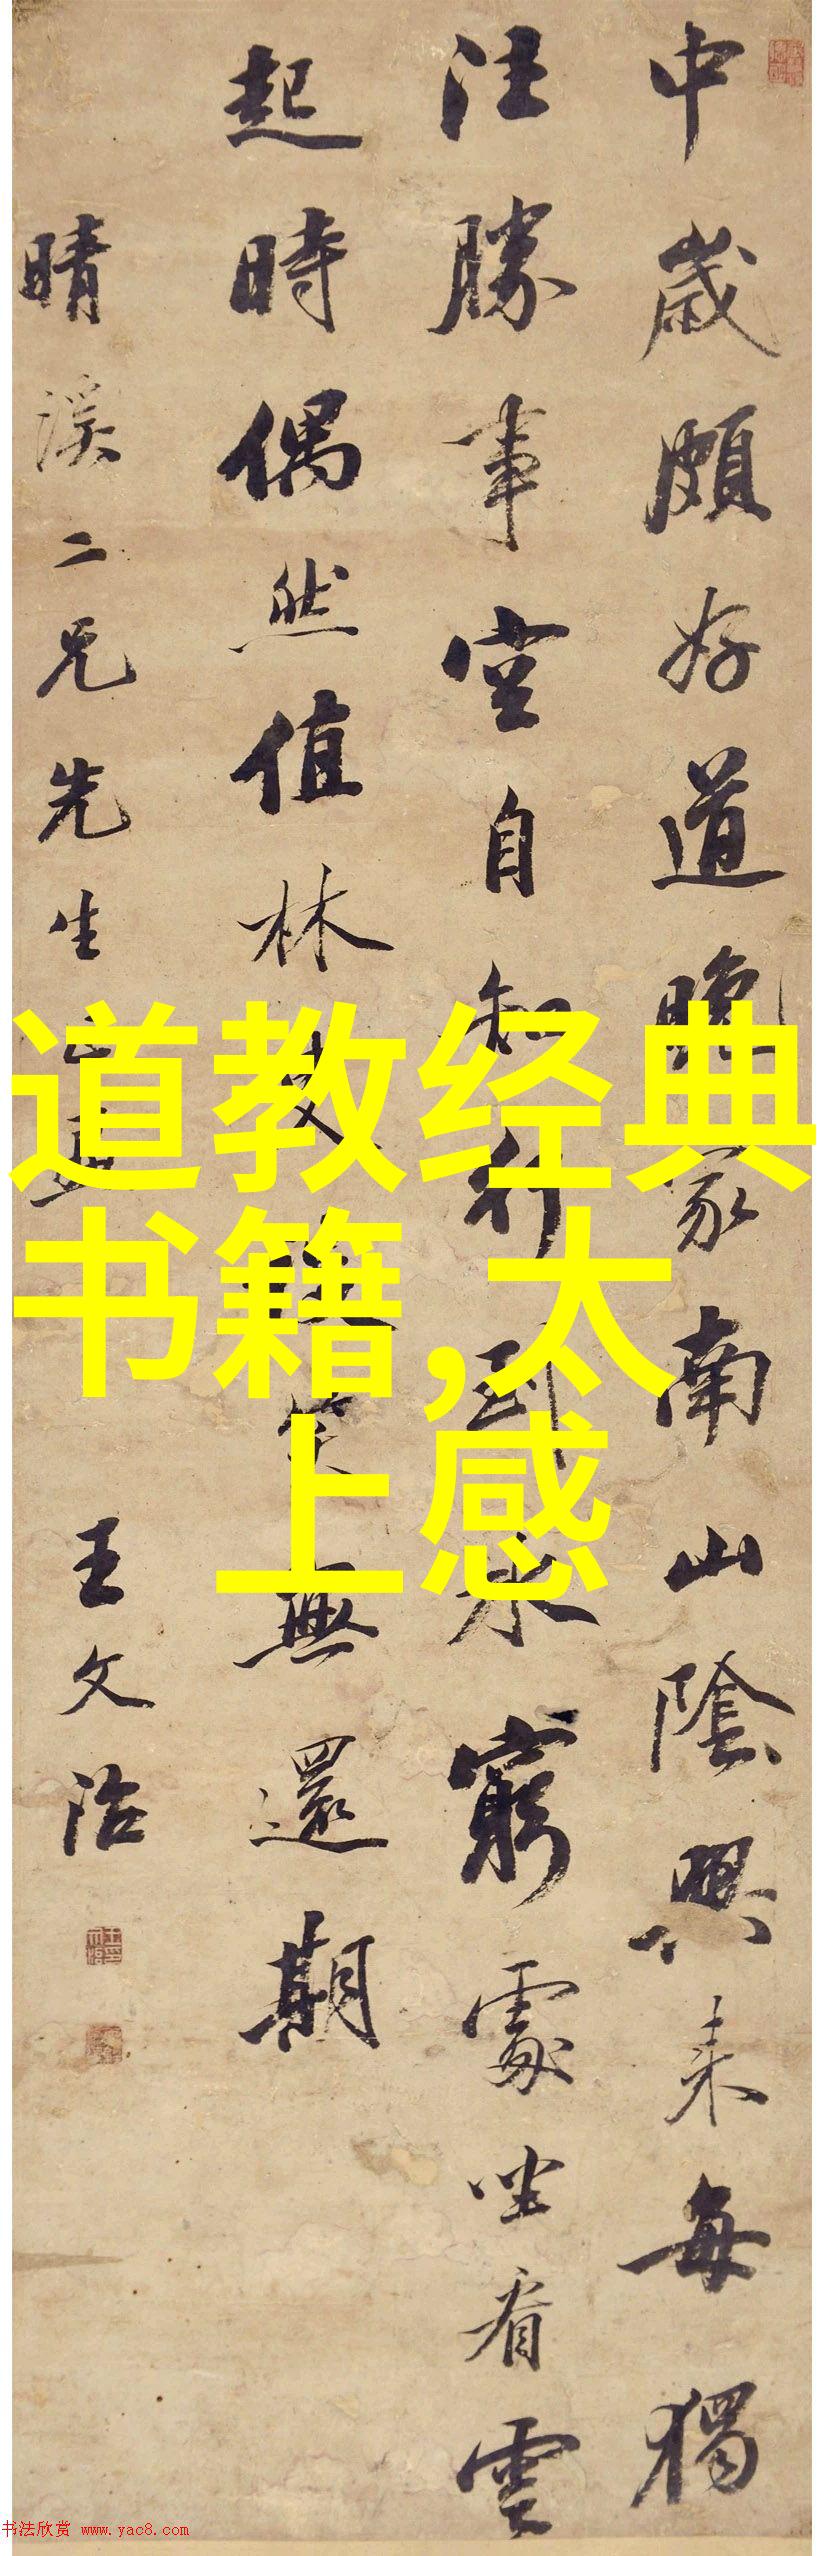 中歲頗好道晚家南山陰興來每獨
往勝事空自知行到水窮處坐看雲
起時偶然值林叟談笑無還期
晴溪二兄先生
王文治
道教经典
书籍,太
上感
书法欣赏 www.yac8.com